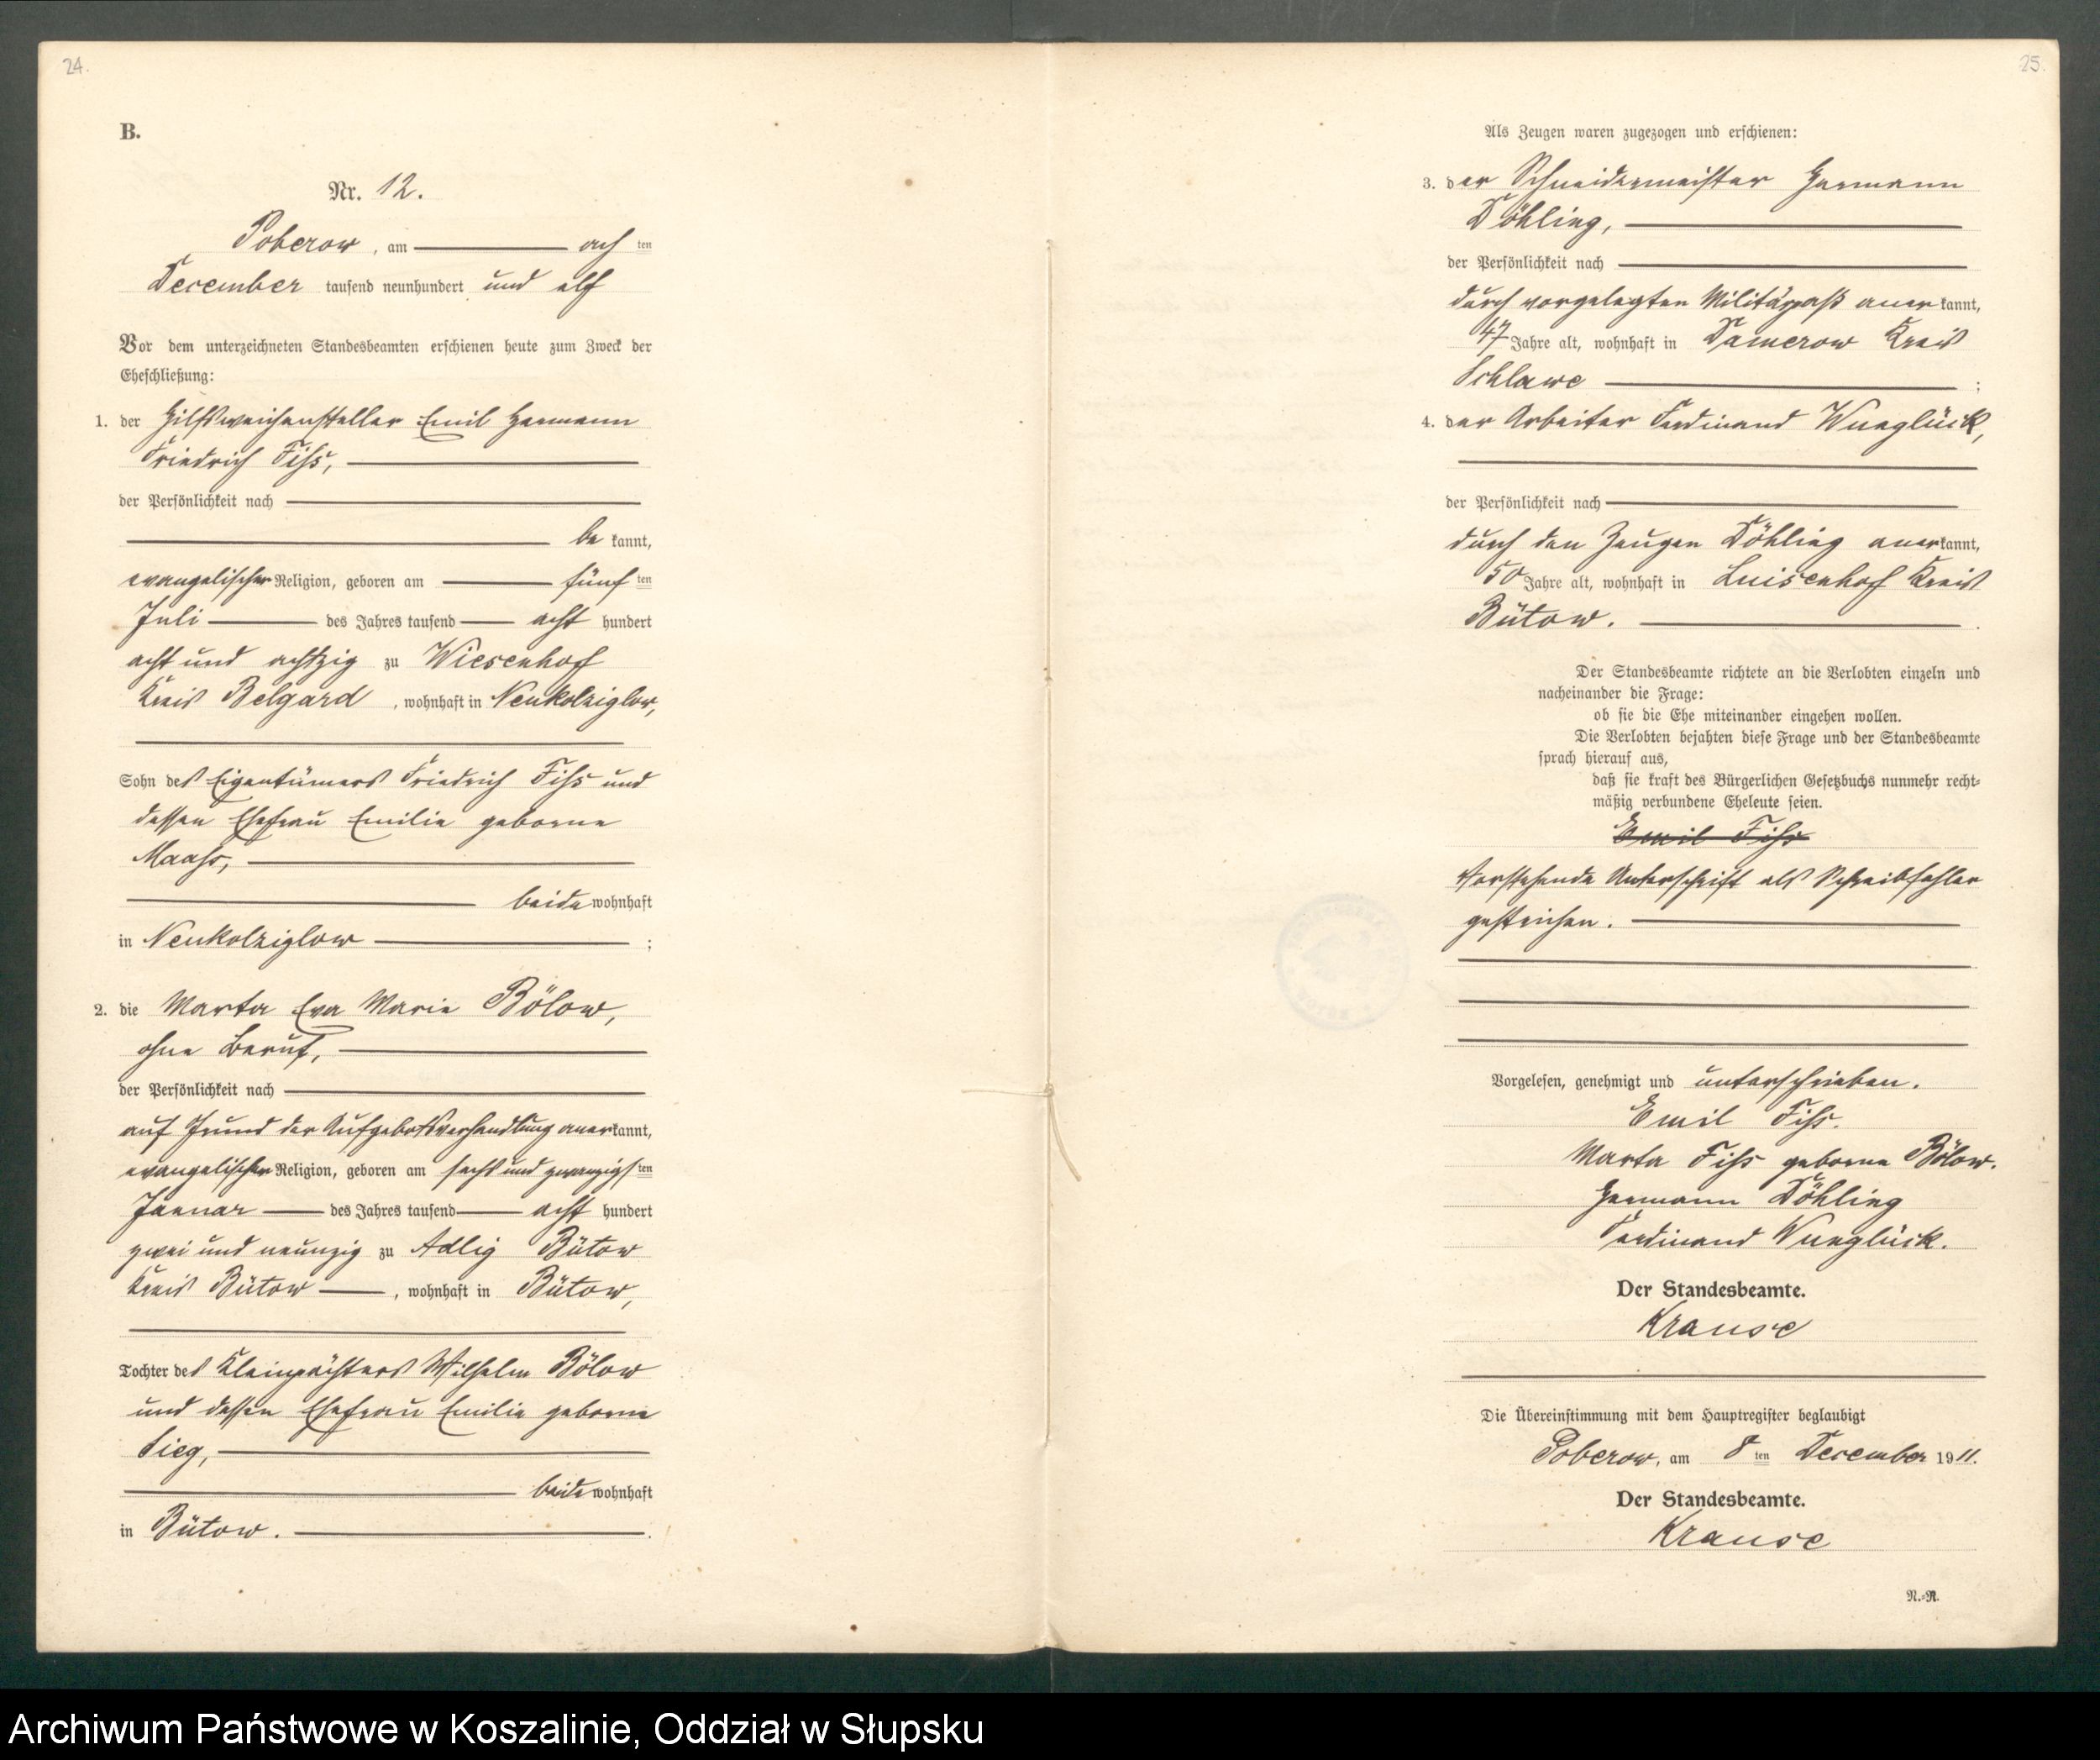 24.
B.
Nr. 12.
Poberow, am ach ten
December tausend neunhundert und elf
Vor dem unterzeichneten Standesbeamten erschienen heute zum Zweck der
Eheschließung:
1. der Hilfsweichensteller Emil Hermann
Friedrich Fiss,
der Persönlichkeit nach
be kannt,
evangelischer Religion, geboren am fünf ten
Juli des Jahres tausend acht hundert
acht und achtzig zu Wiesenhof
Kreis Belgard, wohnhaft in Neukolziglow,
Sohn des Eigentümers Friedrich Fiss und
dessen Ehefrau Emilie geborne
Maass,
beide wohnhaft
in Neukolziglow ;
2. die Marta Eva Marie Bölow,
ohne Beruf,
der Persönlichkeit nach
auf Grund der Aufgebotsverhandlung anerkannt,
evangelischer Religion, geboren am sechs und zwanzigsten
Januar des Jahres tausend acht hundert
zwei und neunzig zu Adlig Bütow
Kreis Bütow, wohnhaft in Bütow,
Tochter des Kleinpächters Wilhelm Bölow
und dessen Ehefrau Emilie geborne
Sieg,
beide wohnhaft
in Bütow.
25.
Als Zeugen waren zugezogen und erschienen:
3. der Schneidermeister Hermann
Döhling,
der Persönlichkeit nach
durch vorgelegten Militärpaß anerkannt,
47 Jahre alt, wohnhaft in Damerow Kreis
Schlawe ;
4. der Arbeiter Ferdinand Wunglück,
der Persönlichkeit nach
durch den Zeugen Döhling anerkannt,
50 Jahre alt, wohnhaft in Luisenhof Kreis
Bütow.
Der Standesbeamte richtete an die Verlobten einzeln und
nacheinander die Frage:
ob sie die Ehe miteinander eingehen wollen.
Die Verlobten bejahten diese Frage und der Standesbeamte
sprach hierauf aus,
daß sie kraft des Bürgerlichen Gesetzbuchs nunmehr recht-
mäßig verbundene Eheleute seien.
Emil Fiss
Vorstehende Unterschrift als Schreibfehler
gestrichen.
Vorgelesen, genehmigt und unterschrieben.
Emil Fiss.
Marta Fiss geborne Bölow.
Hermann Döhling
Ferdinand Wunglück.
Der Standesbeamte.
Krause
Die Übereinstimmung mit dem Hauptregister beglaubigt
Poberow, am 8 ten December 1911.
Der Standesbeamte.
Krause
N.-R.
Archiwum Państwowe w Koszalinie, Oddział w Słupsku